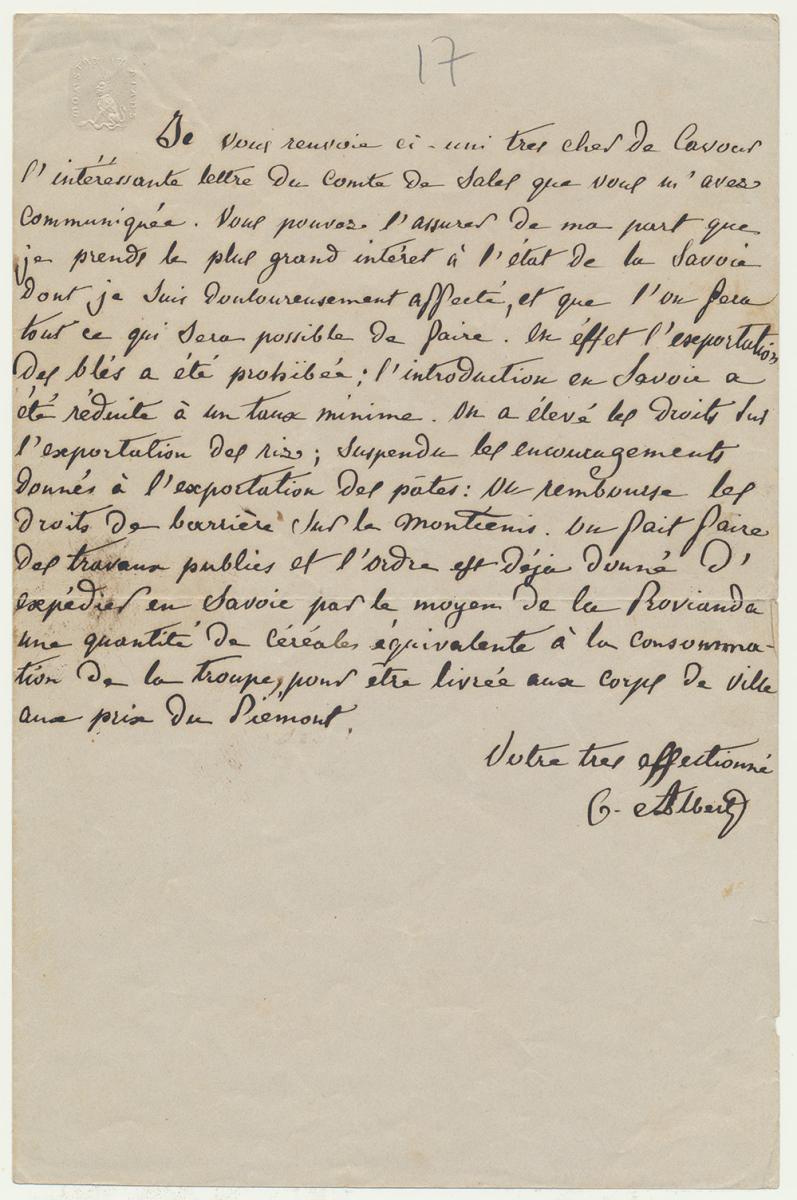 17
Je vous renvoie ci-uni tres cher de Cavour
l'intéréssante lettre du Comte de Sales que vous m'avez
communiquée. Vous pouvez l'assurer de ma part que
je prends le plus grand intéret à l'état de la Savoie
dont je suis douloureusement affecté, et que l'on fera
tout ce qui sera possible de faire. En éffet l'exportation
des blés a été prohibée; l'introduction en Savoie a
été réduite à un taux minime. On a élevé les droits sur
l'exportation des riz; suspendu les encouragements
donnés à l'exportation des pâtes: On rembourse les
droits de barrière sur le Montcenis. On fait faire
des travaux publics et l'ordre est déja donné d'
expédier en Savoie par le moyen de la Provianda
une quantité de céréales équivalente à la consomma-
tion de la troupe, pour être livrée aux corps de ville
aux prix du Piémont.
Votre tres affectionné
C. Albert